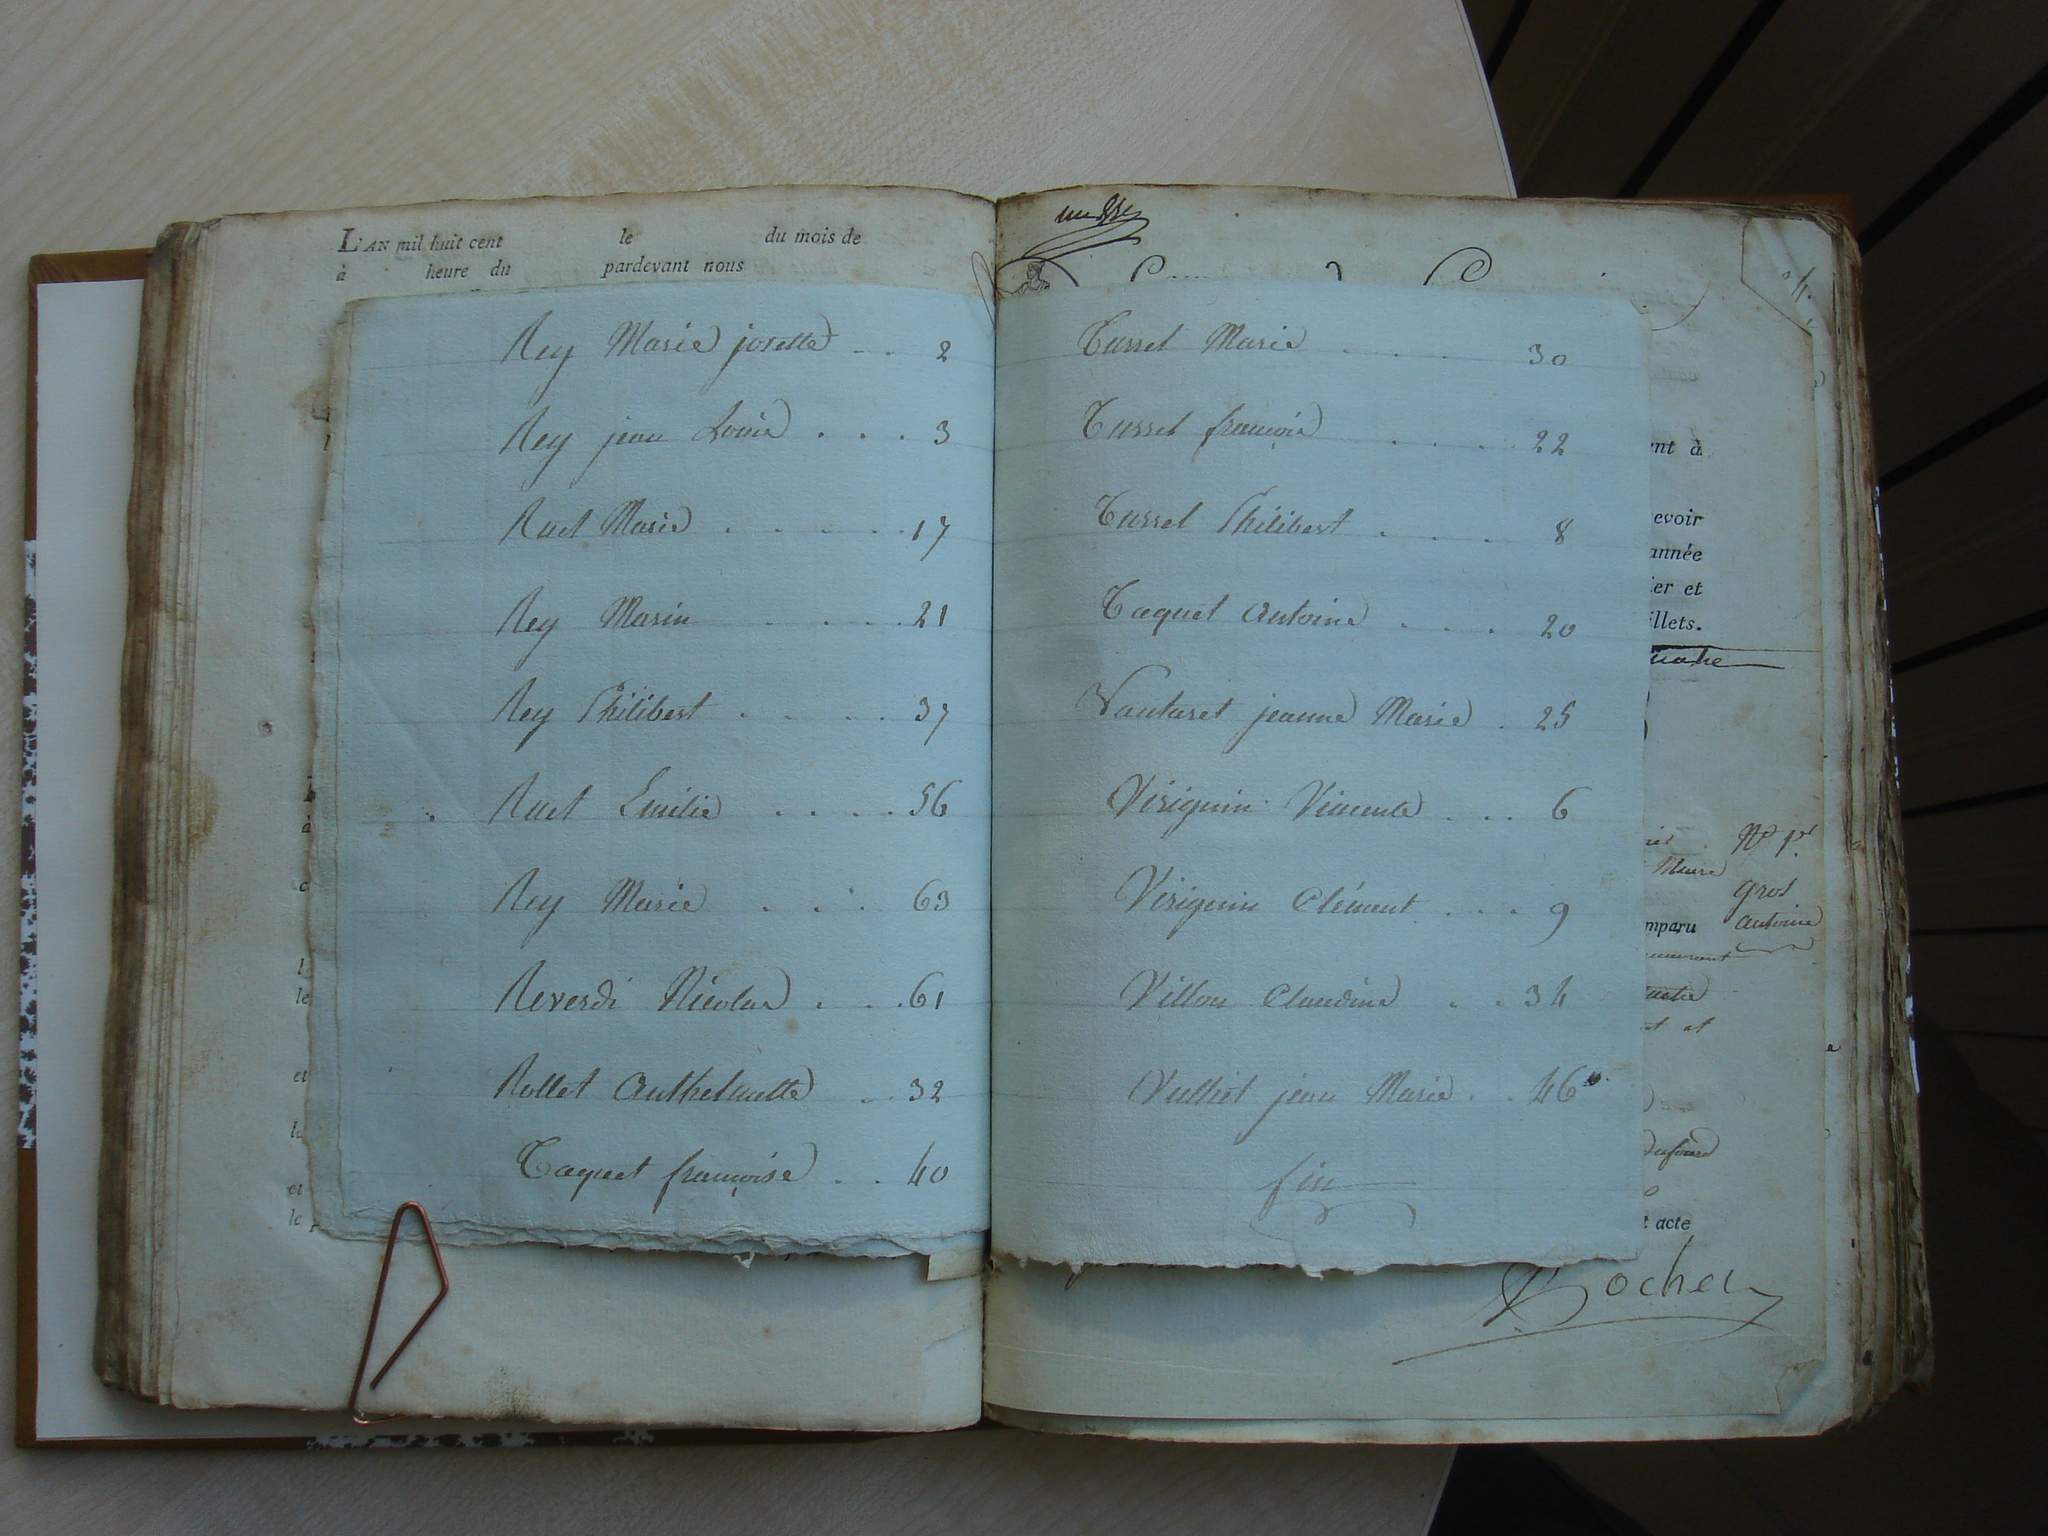 L'AN mil huit cent le du mois de
à heure du pardevant nous
Rey Marie josette . . 2
Rey jean Louis . . . 3
Ruet Marie . . . . . 17
Rey Marin . . . . 21
Rey Philibert . . . . 37
Ruet Emilie . . . . 56
Rey Marie . . . 63
Reverdi Nicolas . . . 61
Rollet Anthelmette . . 32
Taquet françoise . . 40
et
le
et
le
Tussel Marie . . . . 30
Tussel françois . . . . 22
Tussel Philibert . . . . 8
Taquet antoine . . . . 20
Vautaret jeanne Marie . 25
Virignin Vincente . . . 6
Virignin Clément . . . 9
Villon Claudine . . 34
Vulliet jean Marie . . 46
fin
ent à
evoir
année
ier et
illets.
No 1er
gros
antoine
mparu
et
Dufour
t acte
Bochet